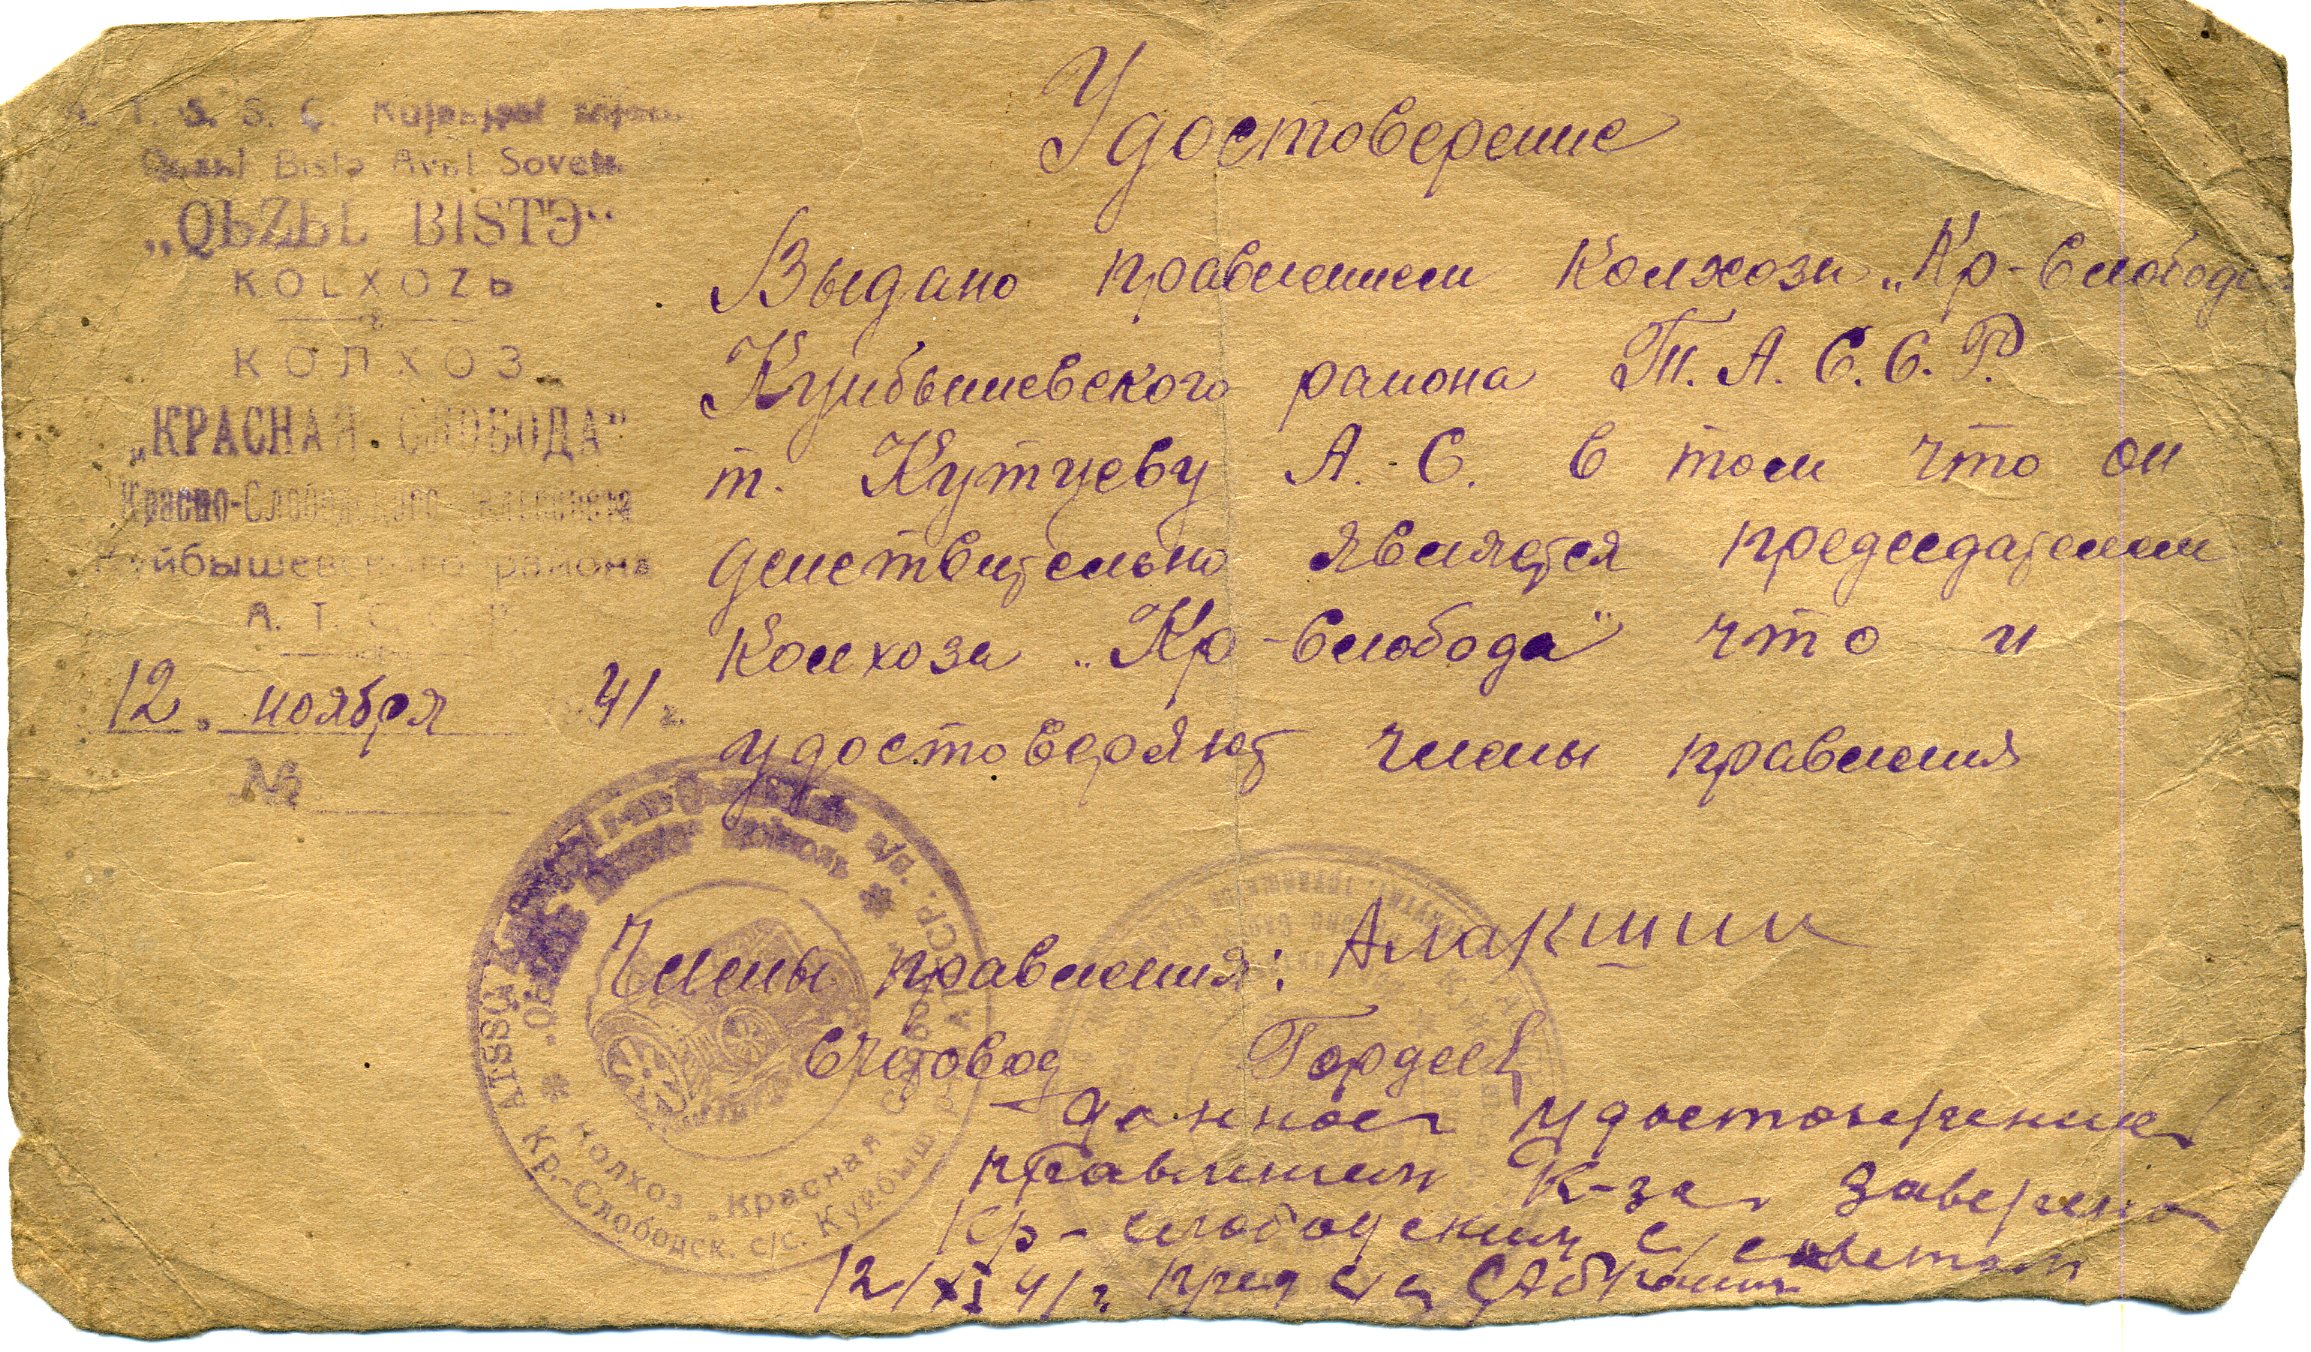 A. T. S. S. Ç. Kujbьşef
Qьzьl Bistə Avьl Soveti
„QЬZЬL BISTƏ“
KOLXOZЬ
КОЛХОЗ
„КРАСНАЯ СЛОБОДА“
Красно-Слободского сельсовета
Куйбышевского района
А. Т. С. С. Р.
12. ноября 41 г.
№
Удостоверение
Выдано правлением колхоза „Кр-Слобода
Куйбышевского района Т. А. С. С. Р.
т. Кутуеву А. С. в том что он
действительно является председателем
колхоза „Кр-Слобода“ что и
удостоверяют члены правления
Члены правления: Алакшин
Счетовод Гордеев
Данное удостоверение
правлением К-за заверено
Кр-слободским с/советом
12/XI 41 г. пред с/с
ATSSÇ
Колхоз „Красная Слобода“
Кр.-Слободск. с/с. Куйбыш. р. АТССР.